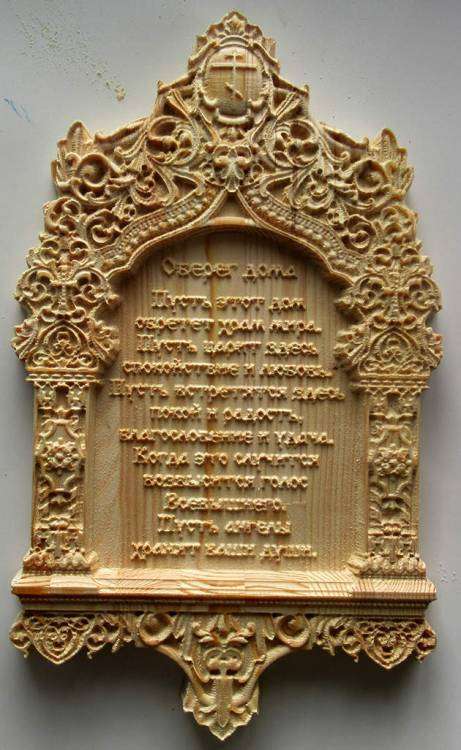 Оберег дома
Пусть этот дом
оберегет храм мира.
Пусть царит здесь
спокойствие и любовь.
Пусть встретится здесь
покой и радость,
благословение и удача.
Когда это случится
возвысится голос
Всевышнего.
Пусть ангелы
хранят ваши души.